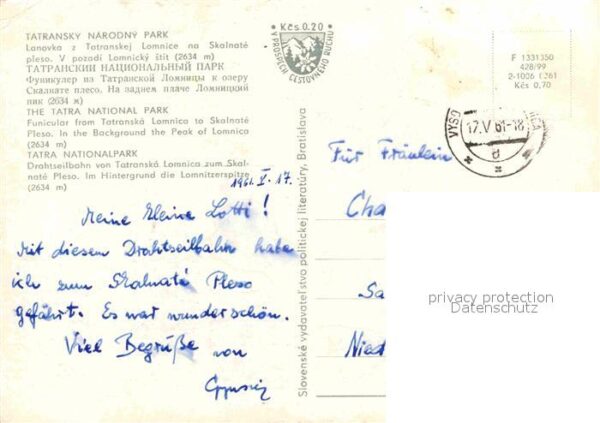 TATRANSKÝ NÁRODNÝ PARK
Lanovka z Tatranskej Lomnice na Skalnaté
pleso. V pozadí Lomnický štít (2634 m)
ТАТРАНСКИЙ НАЦИОНАЛЬНЫЙ ПАРК
Фуникулер из Татранской Ломницы к озеру
Скалнате плесо. На заднем плаче Ломницкий
пик (2634 м)
THE TATRA NATIONAL PARK
Funicular from Tatranská Lomnica to Skalnaté
Pleso. In the Background the Peak of Lomnica
(2634 m)
TATRA NATIONALPARK
Drahtseilbahn von Tatranská Lomnica zum Skal-
naté Pleso. Im Hintergrund die Lomnitzerspitze
(2634 m)
1961. V. 17.
Meine kleine Lotti!
Mit diesem Drahtseilbahn habe
ich zum Skalnatá Pleso
gefährt. Es war wunderschön.
Viel Begrüße von
Slovenské vydavateľstvo politickej literatúry, Bratislava
Kčs 0.20
V PROSPECH CESTOVNÉHO RUCHU
F 1331350
428/99
2-1006 1261
Kčs 0,70
VYSO
17.V.61-18
d
Für Fräulein
Cha
Sa
Nied
privacy protection
Datenschutz